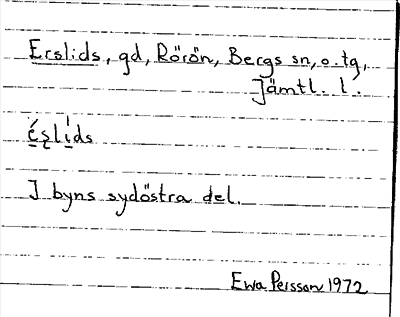 Erslids, gd, Rörön, Bergs sn, o.tg,
Jämtl. l.
é̱s̨lí̱ds
I byns sydöstra del.
Ewa Persson 1972